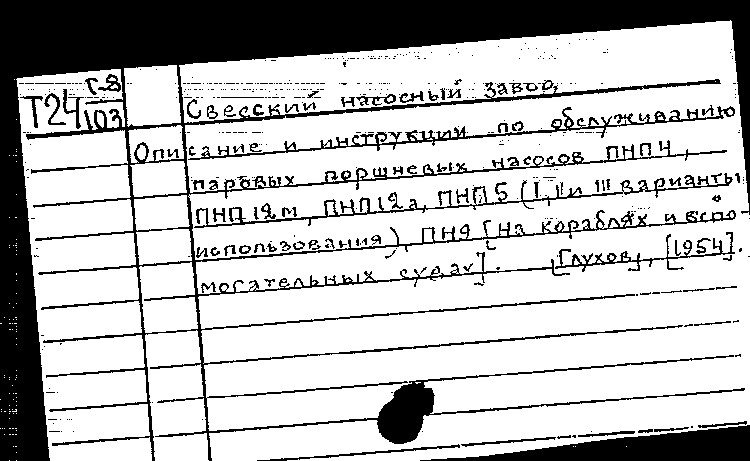 Т24 Г-8
103
Свесский насосный завод,
Описание и инструкции по обслуживанию
паровых поршневых насосов ПНП 4,
ПНП 12м, ПНП 12а, ПНП 5 (I, II и III варианты
использования), ПН9 [на кораблях и вспо-
могательных судах]. [Глухов], [1954].